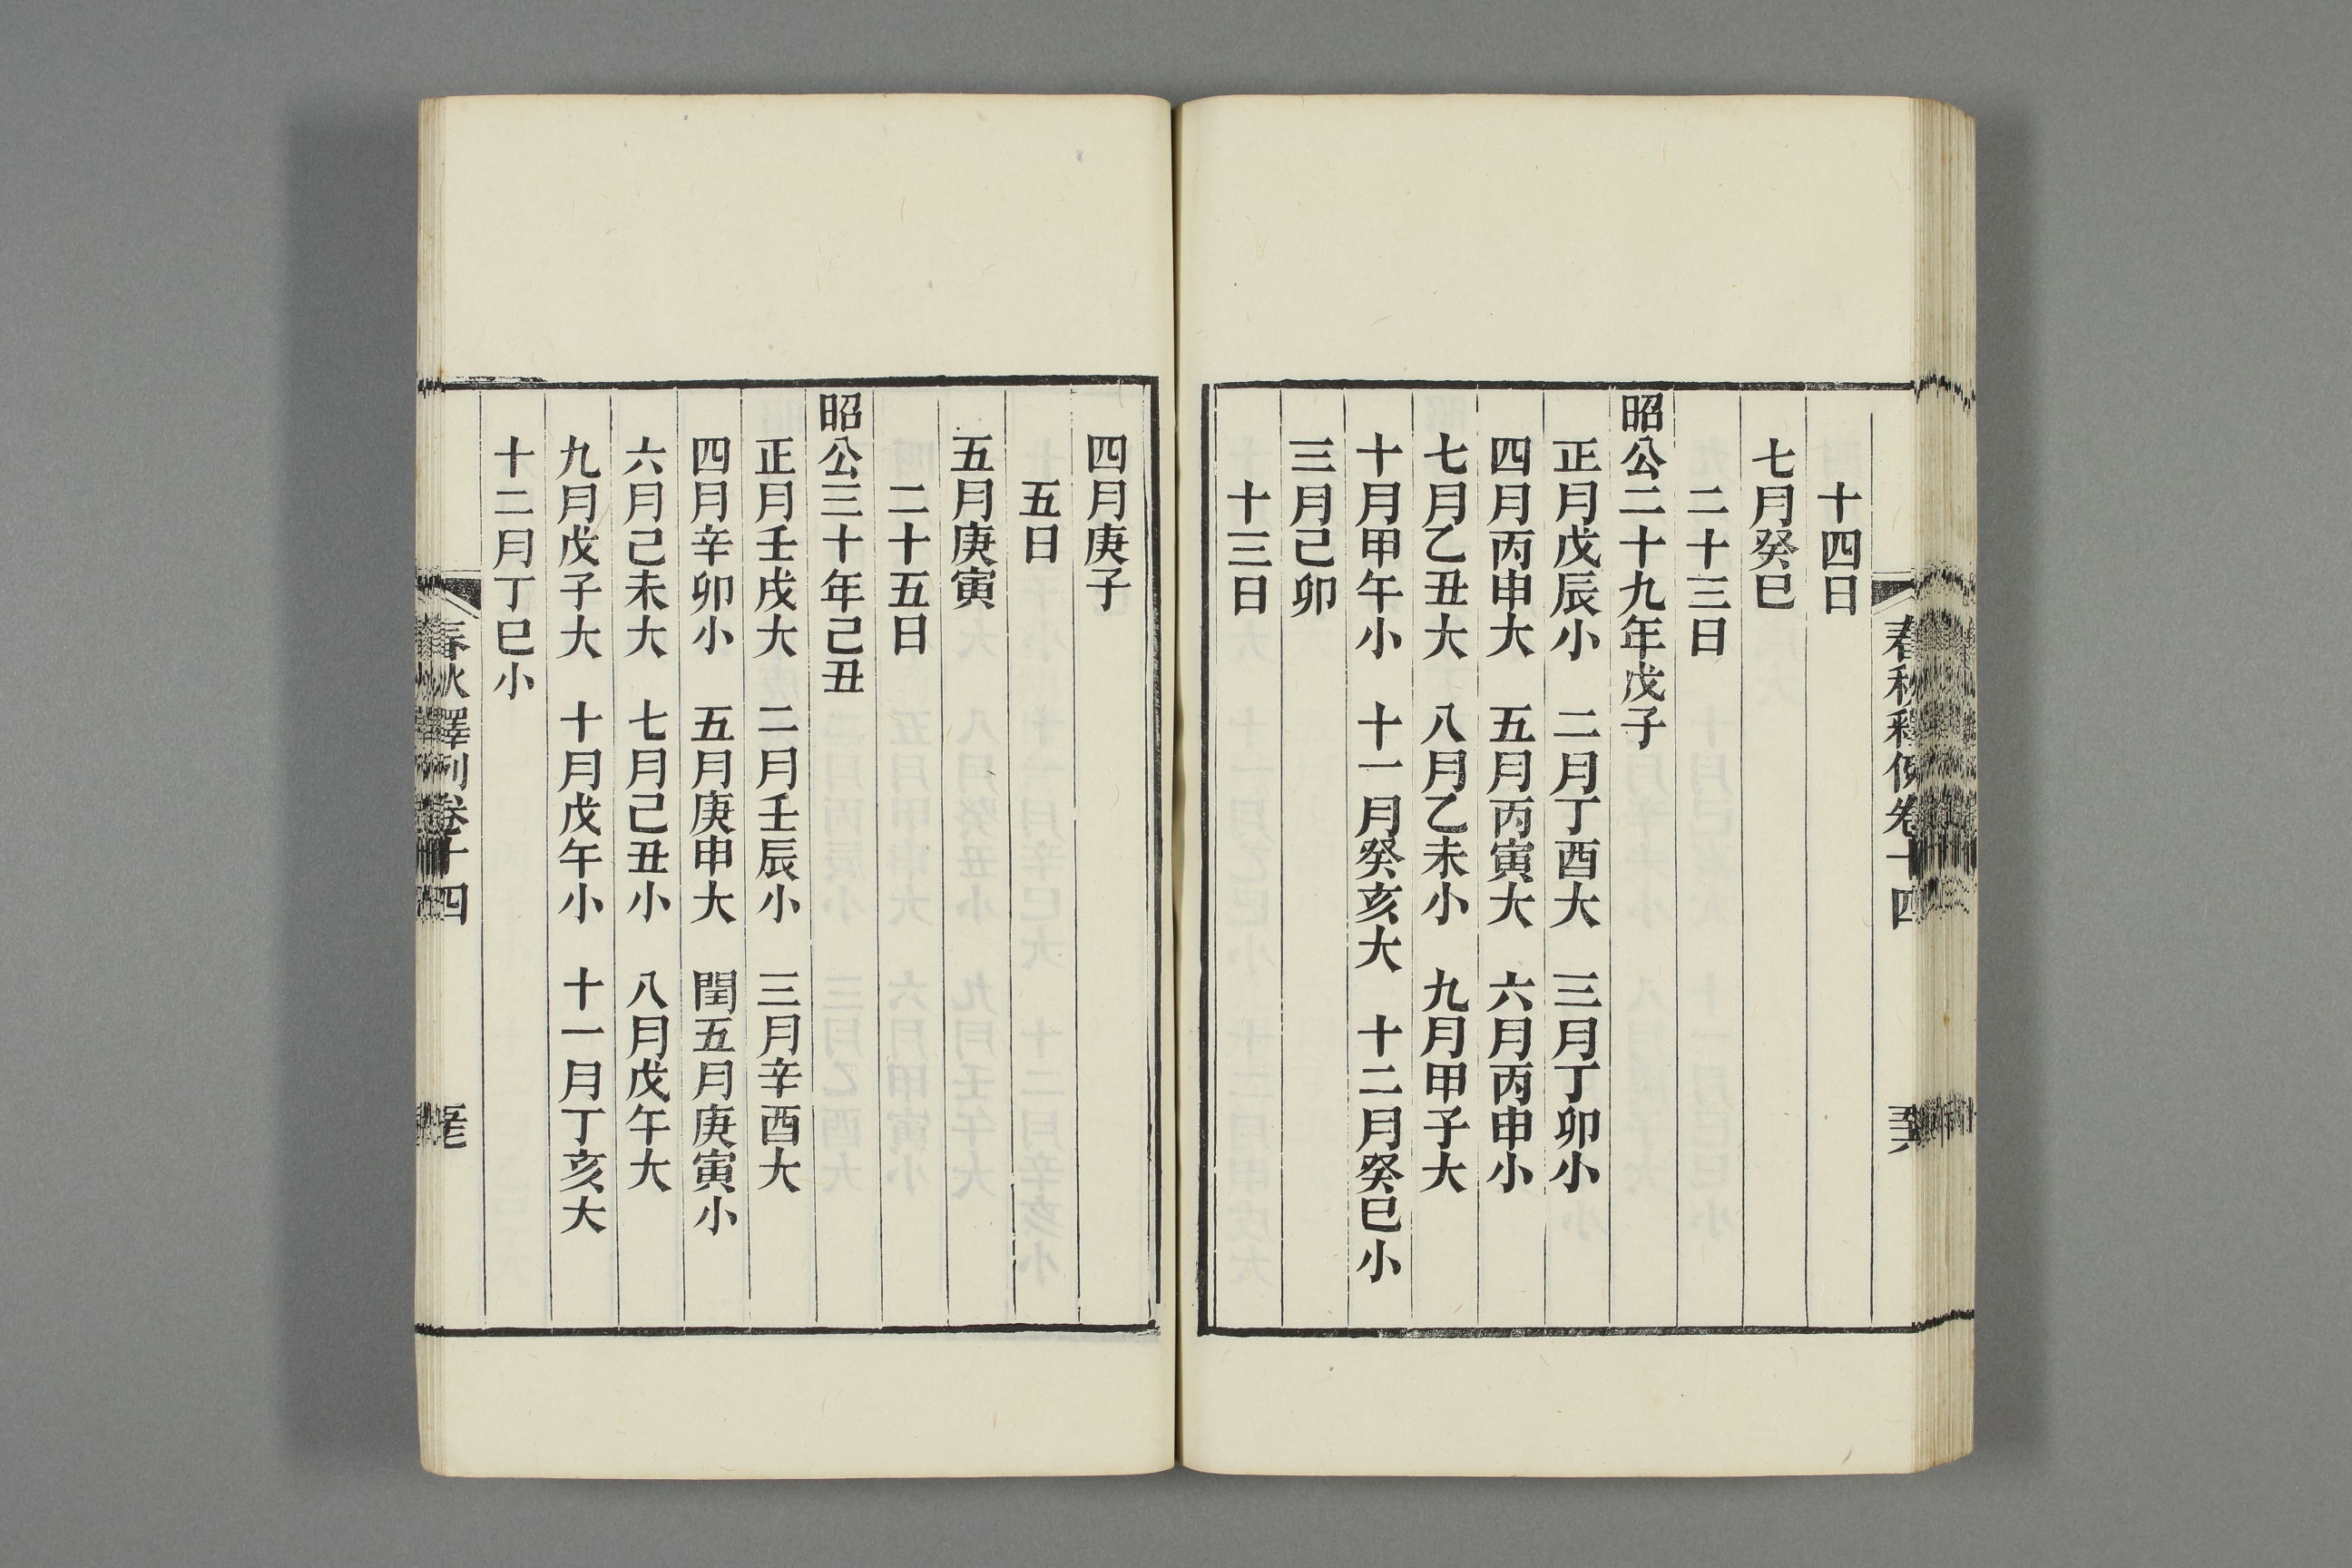 十四日
七月癸巳
二十三日
昭公二十九年戊子
正月戊辰小　二月丁酉大　三月丁卯小
四月丙申大　五月丙寅大　六月丙申小
七月乙丑大　八月乙未小　九月甲子大
十月甲午小　十一月癸亥大　十二月癸巳小
三月己卯
十三日
四月庚子
五日
五月庚寅
二十五日
昭公三十年己丑
正月壬戌大　二月壬辰小　三月辛酉大
四月辛卯小　五月庚申大　閏五月庚寅小
六月己未大　七月己丑小　八月戊午大
九月戊子大　十月戊午小　十一月丁亥大
十二月丁巳小
春秋釋例卷十四